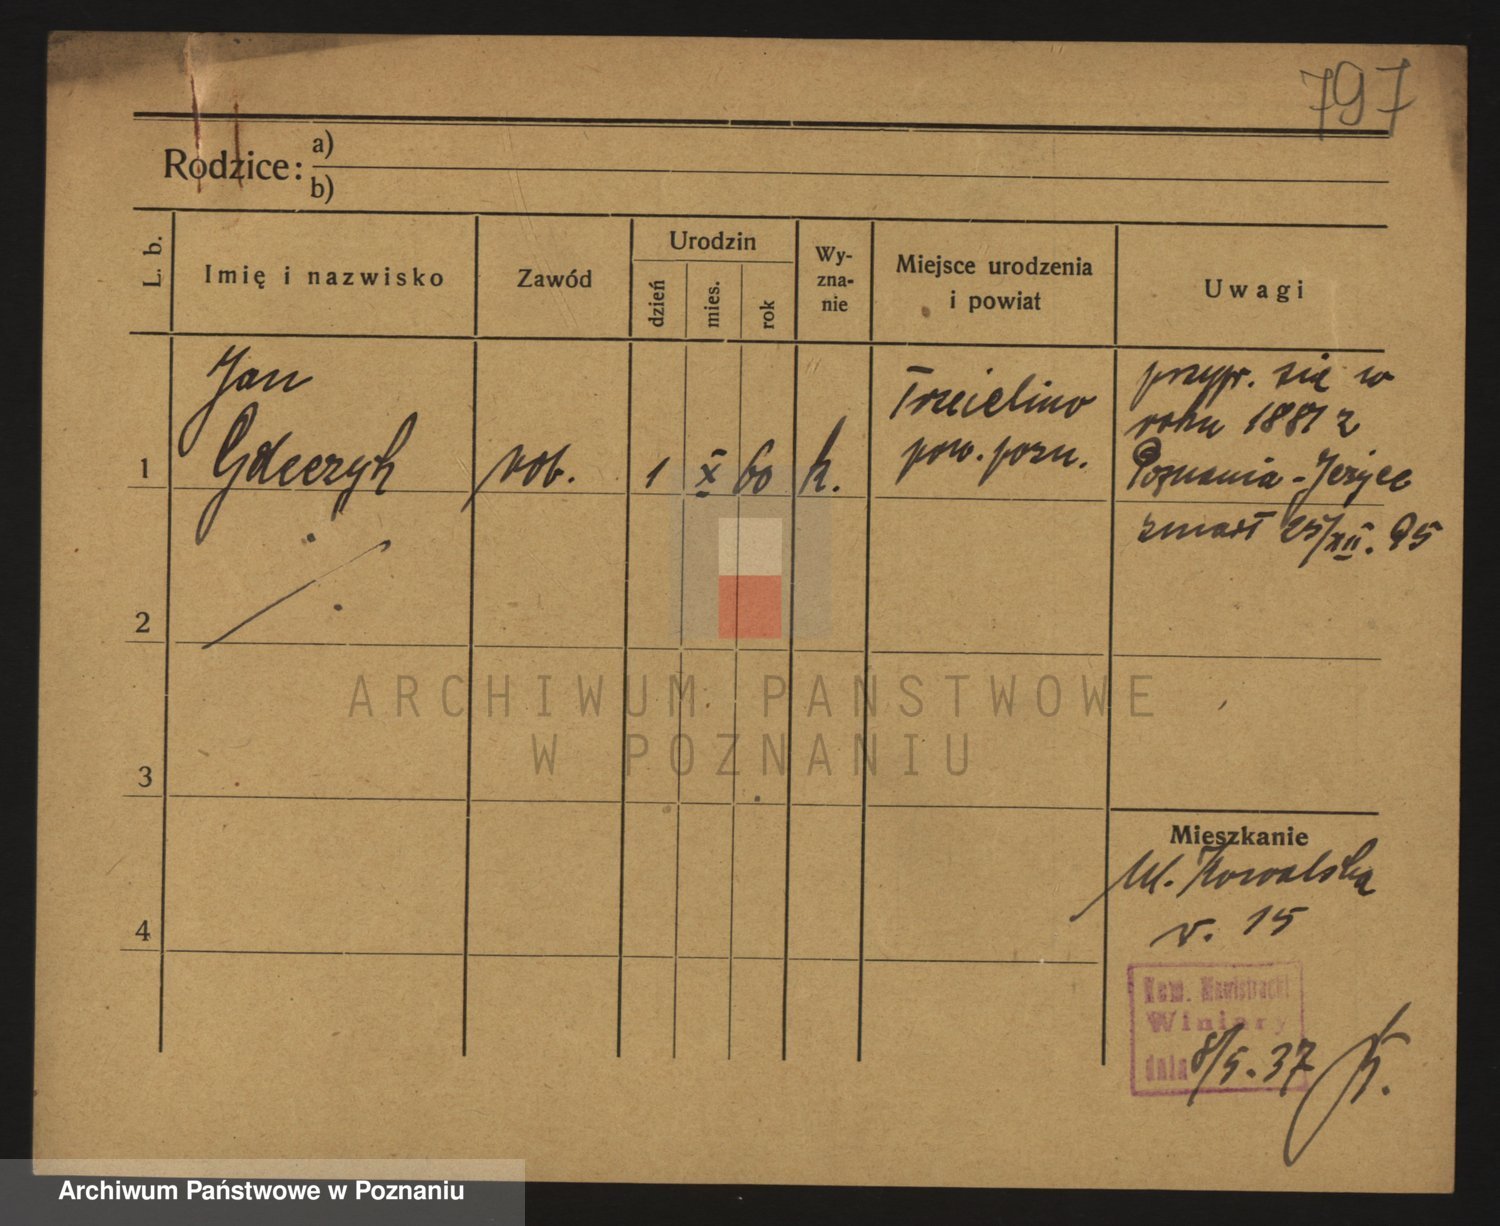 797
Rodzice: a)
b)
L. b.
Imię i nazwisko
Zawód
Urodzin
dzień
mies.
rok
Wy-
zna-
nie
Miejsce urodzenia
i powiat
Uwagi
Jan
1 Gdeczyk rob. 1 X 60 k.
Trzcielino
pow. pozn.
przypr. się w
roku 1881 z
Poznania - Jeżyce
zmarł 25/XII. 95
2
3
4
Mieszkanie
Ul. Kowalska
15
Kom.
Winiary
dnia 8/5. 37 K.
ARCHIWUM PAŃSTWOWE
W POZNANIU
Archiwum Państwowe w Poznaniu